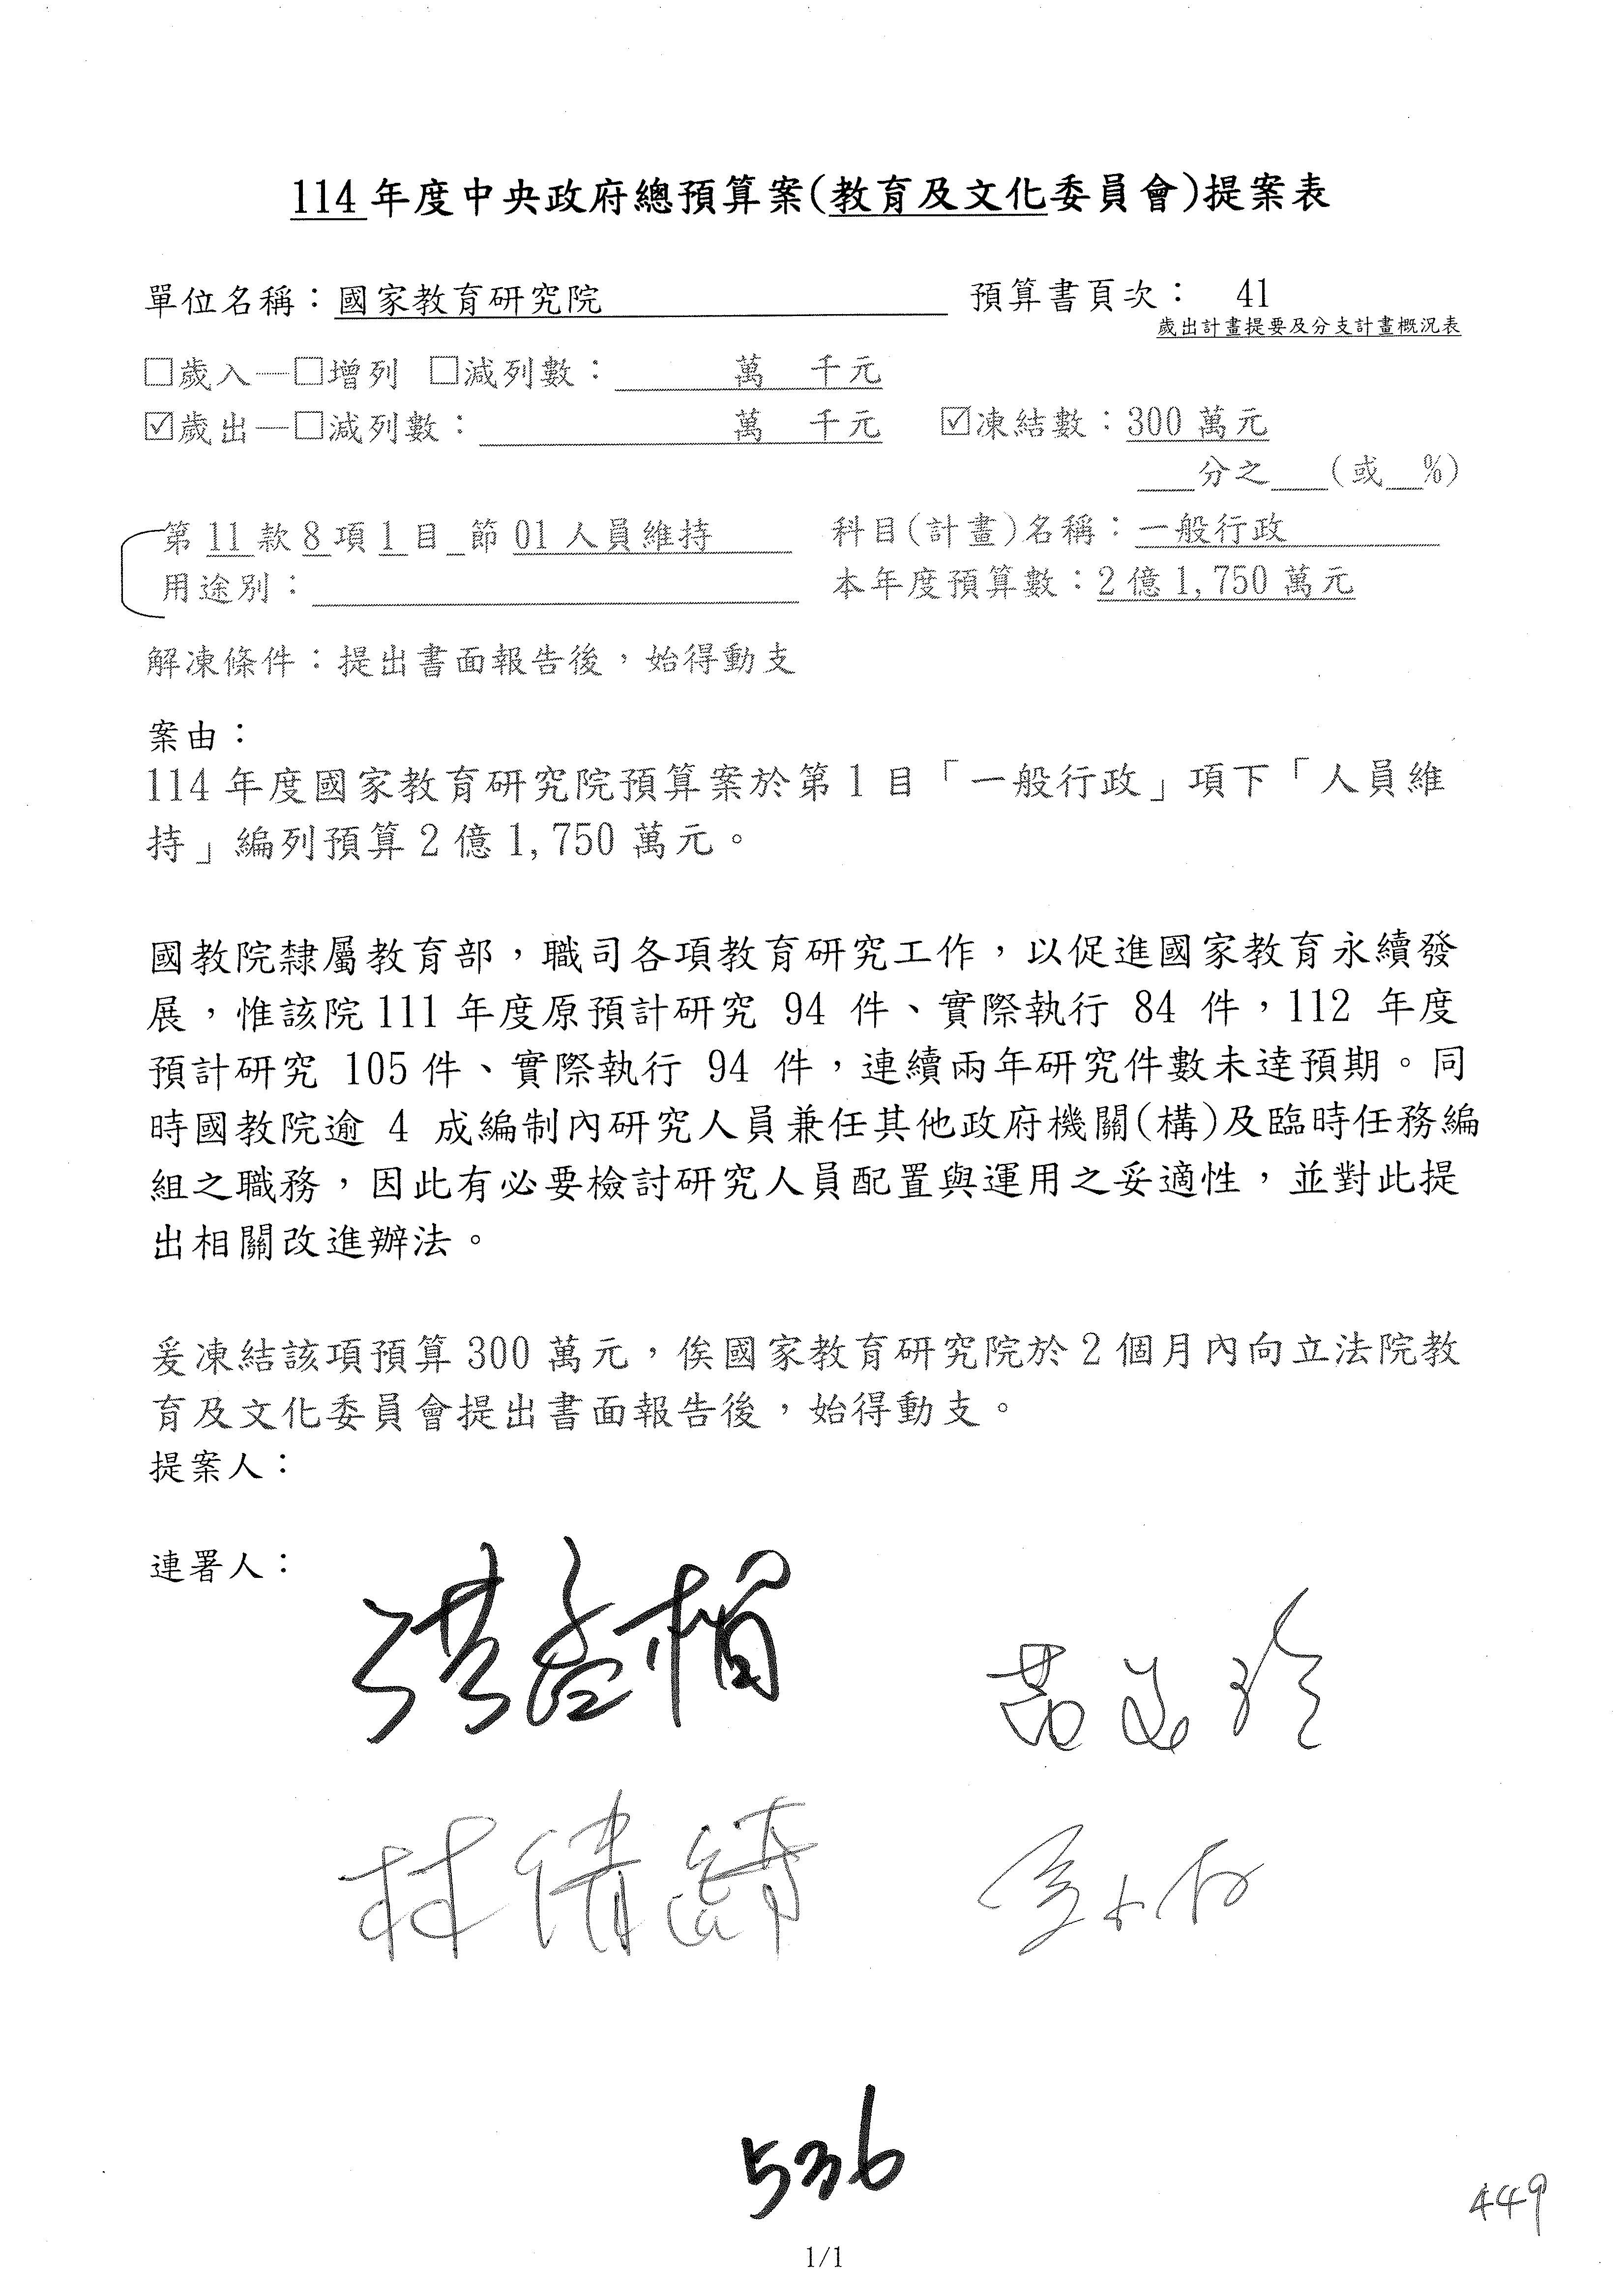 114年度中央政府總預算案(教育及文化委員會)提案表
單位名稱：國家教育研究院 預算書頁次： 41
歲出計畫提要及分支計畫概況表
□歲入—□增列 □減列數： 萬 千元
☑歲出—□減列數： 萬 千元 ☑凍結數：300萬元
___分之___(或__%)
第11款8項1目_節01人員維持 科目(計畫)名稱：一般行政
用途別： 本年度預算數：2億1,750萬元
解凍條件：提出書面報告後，始得動支
案由：
114年度國家教育研究院預算案於第1目「一般行政」項下「人員維
持」編列預算2億1,750萬元。
國教院隸屬教育部，職司各項教育研究工作，以促進國家教育永續發
展，惟該院111年度原預計研究 94 件、實際執行 84 件，112 年度
預計研究 105件、實際執行 94 件，連續兩年研究件數未達預期。同
時國教院逾 4 成編制內研究人員兼任其他政府機關(構)及臨時任務編
組之職務，因此有必要檢討研究人員配置與運用之妥適性，並對此提
出相關改進辦法。
爰凍結該項預算300萬元，俟國家教育研究院於2個月內向立法院教
育及文化委員會提出書面報告後，始得動支。
提案人：
連署人：
洪孟楷
林倩綺
536
449
1/1